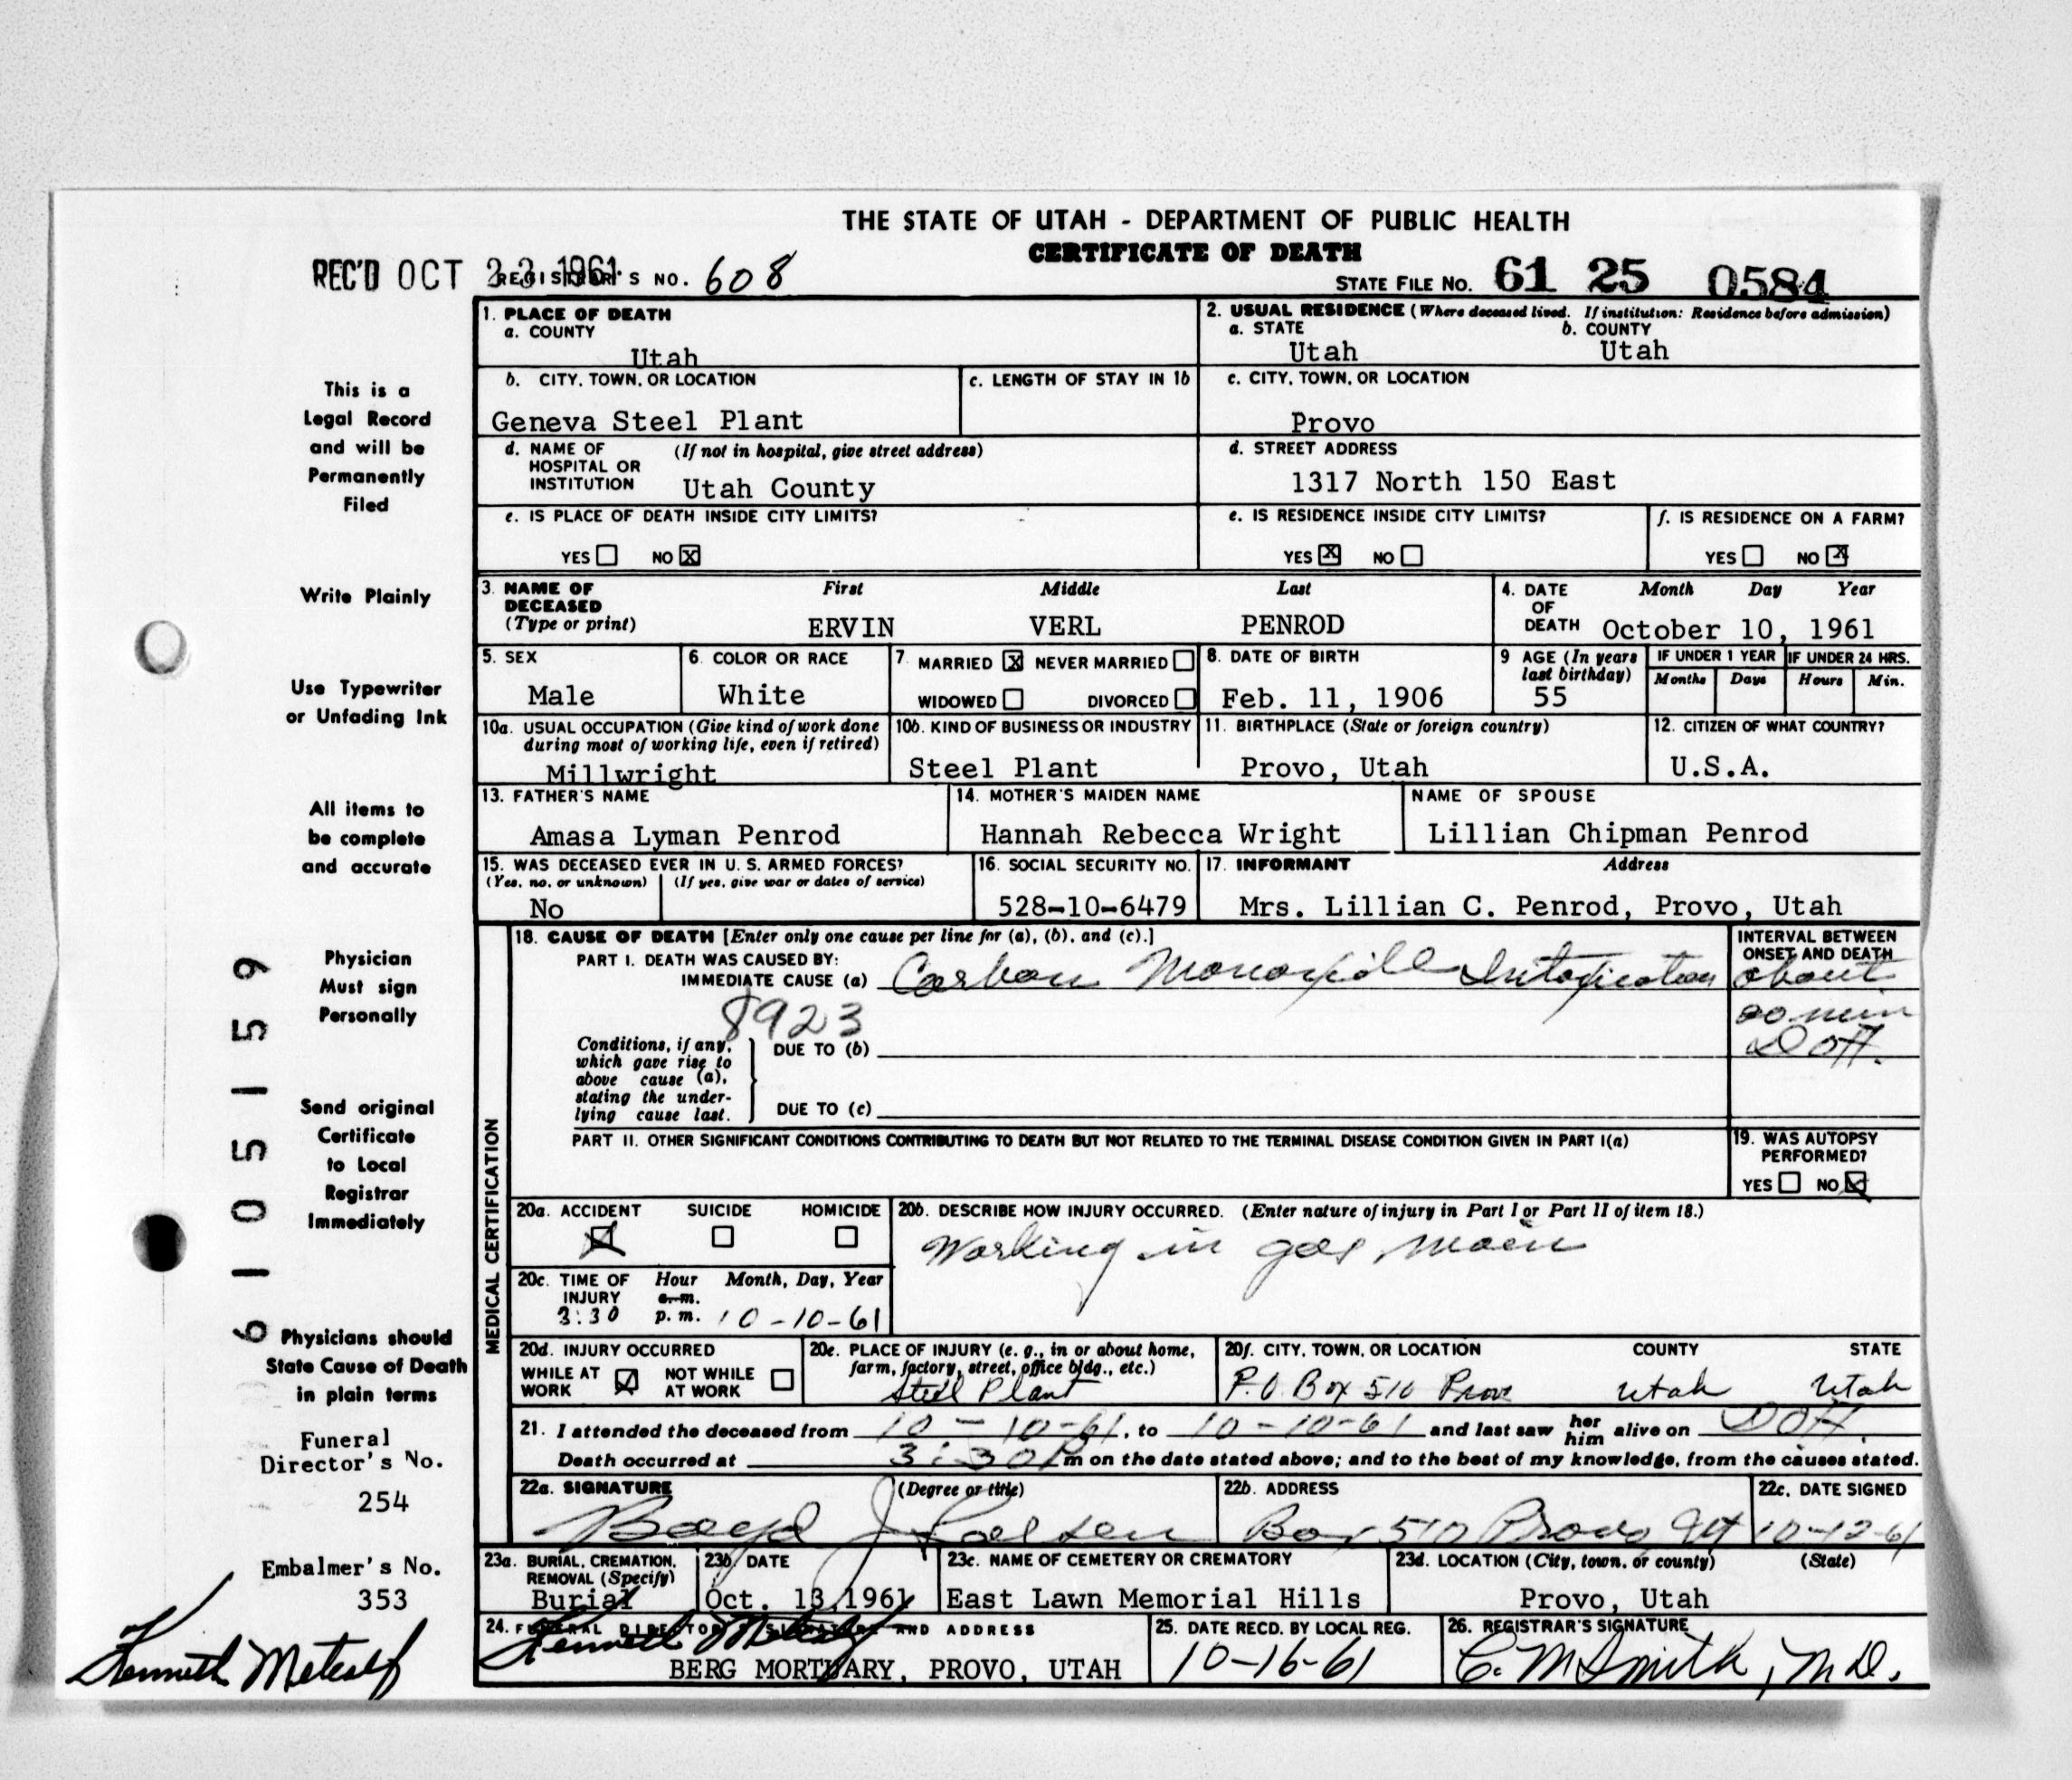 THE STATE OF UTAH - DEPARTMENT OF PUBLIC HEALTH
CERTIFICATE OF DEATH
REC'D OCT 23 1961
REGISTRAR'S NO. 608
STATE FILE NO. 61 25 0584
1. PLACE OF DEATH
a. COUNTY
Utah
2. USUAL RESIDENCE (Where deceased lived. If institution: Residence before admission)
a. STATE b. COUNTY
Utah Utah
b. CITY, TOWN, OR LOCATION
Geneva Steel Plant
c. LENGTH OF STAY IN 1b
c. CITY, TOWN, OR LOCATION
Provo
d. NAME OF (If not in hospital, give street address)
HOSPITAL OR
INSTITUTION Utah County
d. STREET ADDRESS
1317 North 150 East
e. IS PLACE OF DEATH INSIDE CITY LIMITS?
YES NO X
e. IS RESIDENCE INSIDE CITY LIMITS?
YES X NO
f. IS RESIDENCE ON A FARM?
YES NO X
3. NAME OF First Middle Last
DECEASED
(Type or print) ERVIN VERL PENROD
4. DATE Month Day Year
OF
DEATH October 10, 1961
5. SEX
Male
6. COLOR OR RACE
White
7. MARRIED X NEVER MARRIED
WIDOWED DIVORCED
8. DATE OF BIRTH
Feb. 11, 1906
9 AGE (In years
last birthday)
55
IF UNDER 1 YEAR IF UNDER 24 HRS.
Months Days Hours Min.
10a. USUAL OCCUPATION (Give kind of work done
during most of working life, even if retired)
Millwright
10b. KIND OF BUSINESS OR INDUSTRY
Steel Plant
11. BIRTHPLACE (State or foreign country)
Provo, Utah
12. CITIZEN OF WHAT COUNTRY?
U.S.A.
13. FATHER'S NAME
Amasa Lyman Penrod
14. MOTHER'S MAIDEN NAME
Hannah Rebecca Wright
NAME OF SPOUSE
Lillian Chipman Penrod
15. WAS DECEASED EVER IN U. S. ARMED FORCES?
(Yes, no, or unknown) (If yes, give war or dates of service)
No
16. SOCIAL SECURITY NO.
528-10-6479
17. INFORMANT Address
Mrs. Lillian C. Penrod, Provo, Utah
MEDICAL CERTIFICATION
18. CAUSE OF DEATH [Enter only one cause per line for (a), (b), and (c).]
PART I. DEATH WAS CAUSED BY:
IMMEDIATE CAUSE (a) Carbon Monoxide Intoxication
8923
INTERVAL BETWEEN
ONSET AND DEATH
about
20 min
DOA.
Conditions, if any,
which gave rise to
above cause (a),
stating the under-
lying cause last.
DUE TO (b)
DUE TO (c)
PART II. OTHER SIGNIFICANT CONDITIONS CONTRIBUTING TO DEATH BUT NOT RELATED TO THE TERMINAL DISEASE CONDITION GIVEN IN PART I(a)
19. WAS AUTOPSY
PERFORMED?
YES NO X
20a. ACCIDENT SUICIDE HOMICIDE
X
20b. DESCRIBE HOW INJURY OCCURRED. (Enter nature of injury in Part I or Part II of item 18.)
Working in gas main
20c. TIME OF Hour Month, Day, Year
INJURY a.m.
3:30 p.m. 10-10-61
20d. INJURY OCCURRED
WHILE AT WORK X NOT WHILE AT WORK
20e. PLACE OF INJURY (e. g., in or about home,
farm, factory, street, office bldg., etc.)
Steel Plant
20f. CITY, TOWN, OR LOCATION COUNTY STATE
P.O. Box 510 Provo Utah Utah
21. I attended the deceased from 10-10-61, to 10-10-61 and last saw her him alive on DOA.
Death occurred at 3:30 P m on the date stated above; and to the best of my knowledge, from the causes stated.
22a. SIGNATURE (Degree or title)
Boyd J Larsen
22b. ADDRESS
Box 510 Provo Ut
22c. DATE SIGNED
10-12-61
23a. BURIAL, CREMATION,
REMOVAL (Specify)
Burial
23b. DATE
Oct. 13, 1961
23c. NAME OF CEMETERY OR CREMATORY
East Lawn Memorial Hills
23d. LOCATION (City, town, or county) (State)
Provo, Utah
24. FUNERAL DIRECTOR'S SIGNATURE AND ADDRESS
Kenneth Metcalf
BERG MORTUARY, PROVO, UTAH
25. DATE RECD. BY LOCAL REG.
10-16-61
26. REGISTRAR'S SIGNATURE
C. M Smith, M.D.
This is a
Legal Record
and will be
Permanently
Filed
Write Plainly
Use Typewriter
or Unfading Ink
All items to
be complete
and accurate
Physician
Must sign
Personally
Send original
Certificate
to Local
Registrar
Immediately
Physicians should
State Cause of Death
in plain terms
Funeral
Director's No.
254
Embalmer's No.
353
Kenneth Metcalf
6105159